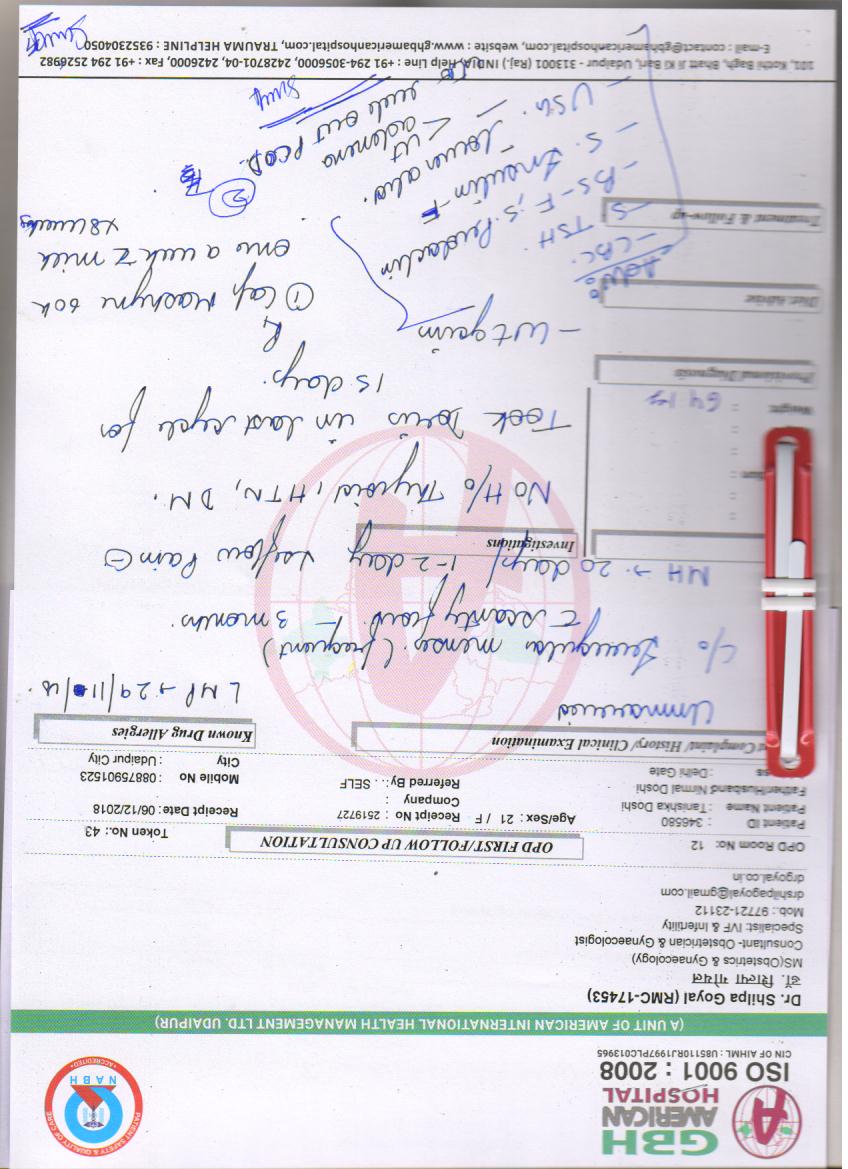 GBH
AMERICAN
HOSPITAL
ISO 9001 : 2008
CIN OF AIHML : U85110RJ1997PLC013965
PATIENT SAFETY & QUALITY OF CARE
NABH
• ACCREDITED •
(A UNIT OF AMERICAN INTERNATIONAL HEALTH MANAGEMENT LTD. UDAIPUR)
Dr. Shilpa Goyal (RMC-17453)
डॉ. शिल्पा गोयल
MS(Obstetrics & Gynaecology)
Consultant- Obstetrician & Gynaecologist
Specialist: IVF & Infertility
Mob.: 97721-23112
drshilpagoyal@gmail.com
drgoyal.co.in
OPD Room No: 12
OPD FIRST/FOLLOW UP CONSULTATION
Token No.: 43
Patient ID : 346580
Age/Sex : 21 / F
Receipt No : 2519727
Receipt Date: 06/12/2018
Patient Name : Tanishka Doshi
Company :
Father/Husband Nirmal Doshi
Referred By: . SELF
Mobile No : 08875901523
: Delhi Gate
City : Udaipur City
Complaint/ History/ Clinical Examination
Known Drug Allergies
Unmarried
LMP → 29/11/18.
C/o Irregular menses (frequent)
c scanty flow. - 3 months.
MH → 20 days / 1-2 days flow Pain ⊖
Investigations
No H/o Thyroid, HTN, DM.
Took in last cycle for
15 days.
Weight : 64 kg
Provisional Diagnosis
- wt gain
Diet Advise
Rx
① Cap 60k
once a week c milk
x8 weeks
②
Treatment & Follow-up
Adv:
- CBC.
- S. TSH.
- BS-F, S. Prolactin
- S. Insulin-F
- USG. - lower abd.
< Ut
adenexa
rule out PCOD.
101, Kothi Bagh, Bhatt Ji Ki Bari, Udaipur - 313001 (Raj.) INDIA, Help Line : +91 294-3056000, 2428701-04, 2426000, Fax : +91 294 2526982
E-mail : contact@gbhamericanhospital.com, website : www.gbhamericanhospital.com, TRAUMA HELPLINE : 9352304050